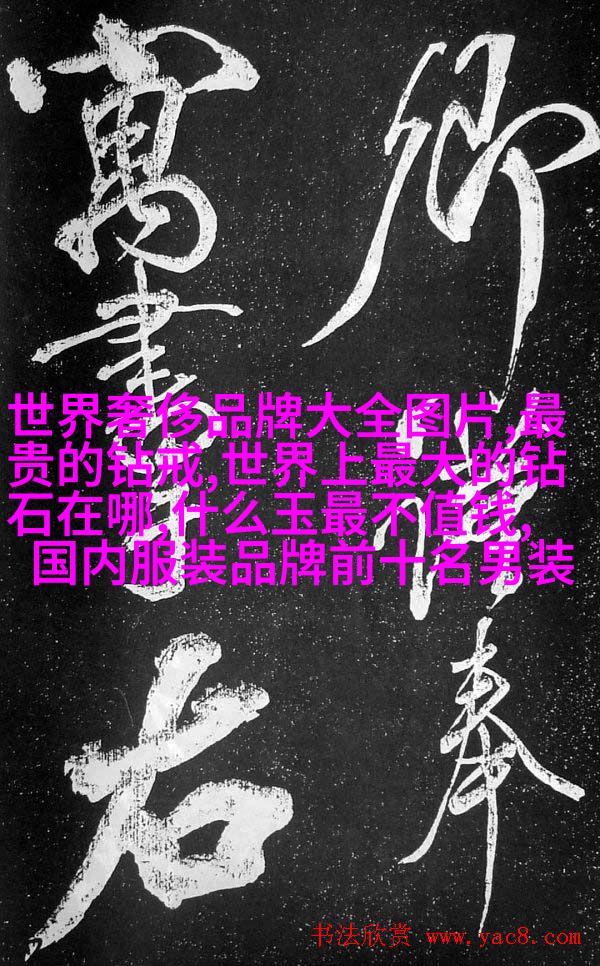 卿 奉
書 右
世界奢侈品牌大全图片,最
贵的钻戒,世界上最大的钻
石在哪,什么玉最不值钱,
国内服装品牌前十名男装
书法欣赏 www.yac8.com